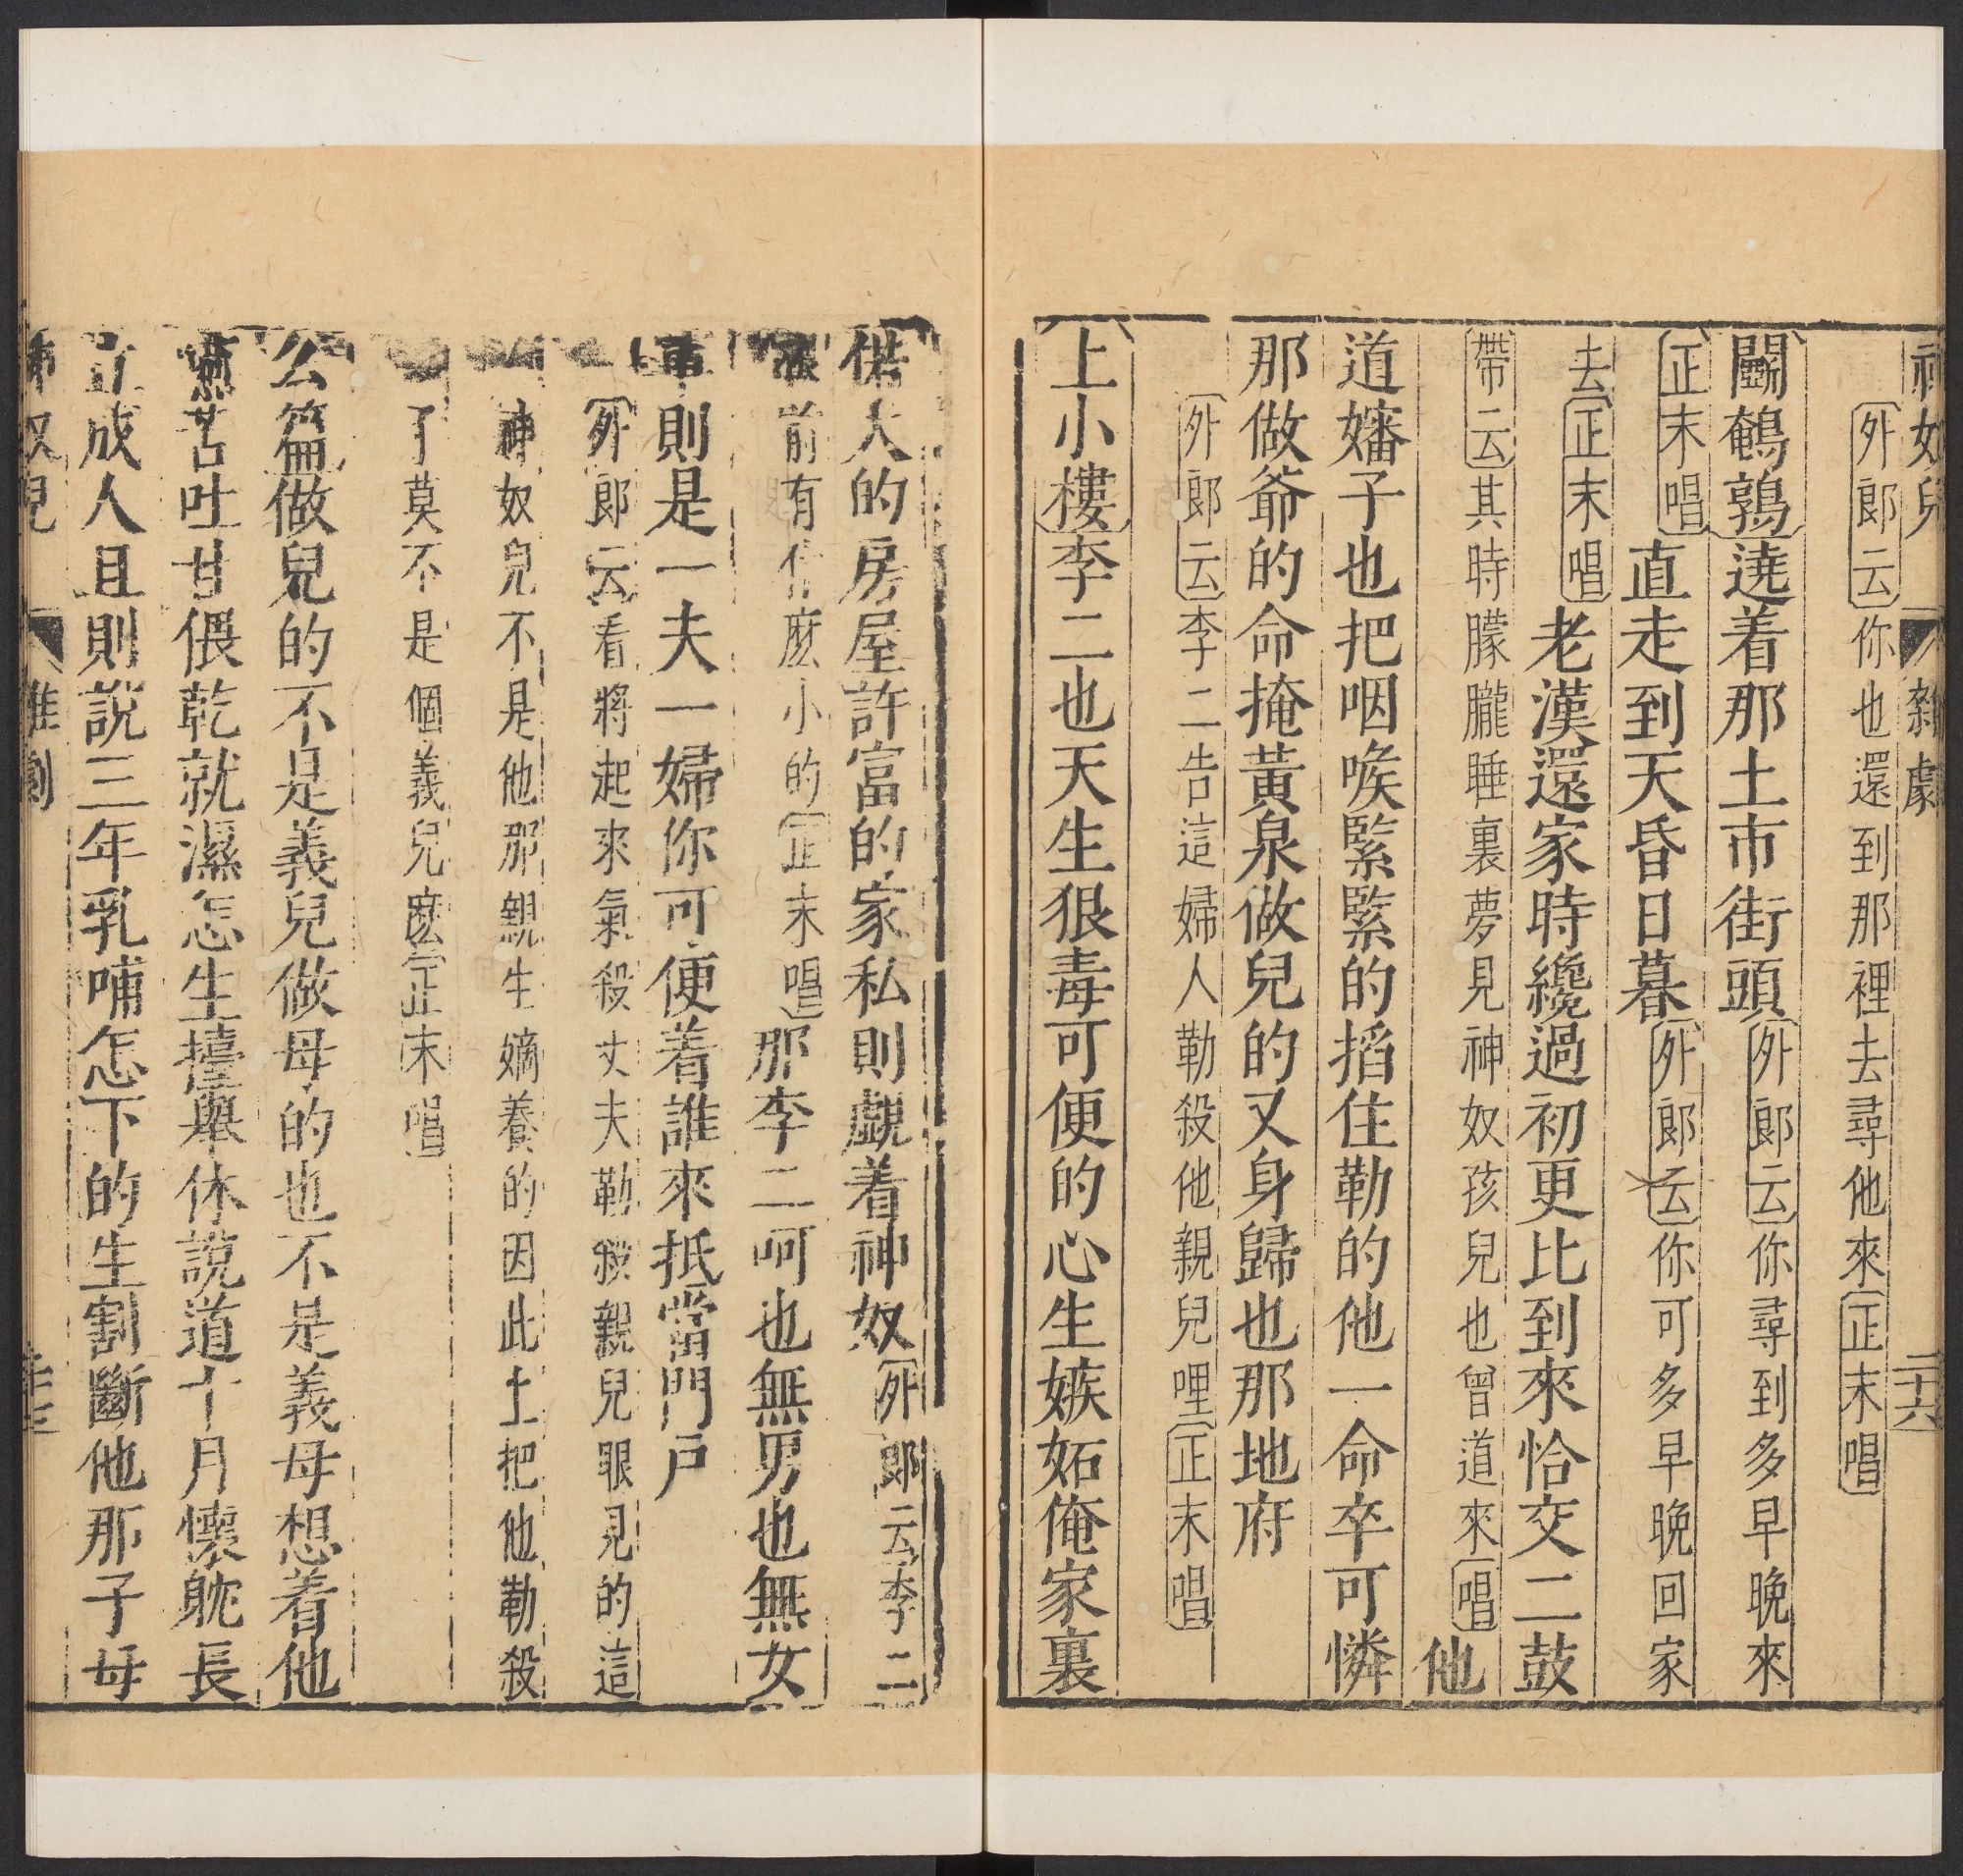 神奴兒 雜劇 二十六
外郎云你也還到那裡去尋他來正末唱
鬭鵪鶉遶着那土市街頭外郎云你尋到多早晚來
正末唱直走到天昏日暮外郎云你可多早晚回家
去正末唱老漢還家時纔過初更比到來恰交二鼓
帶云其時朦朧睡裏夢見神奴孩兒也曾道來唱他
道嬸子也把咽喉緊緊的搯住勒的他一命卒可憐
那做爺的命掩黃泉做兒的又身歸也那地府
外郎云李二告這婦人勒殺他親兒哩正末唱
上小樓李二也天生狠毒可便的心生嫉妬俺家裏
偌大的房屋許富的家私則覷着神奴外郎云李二
前有什麽小的正末唱那李二呵也無男也無女
則是一夫一婦你可便着誰來抵當門戶
外郎云看將起來氣殺丈夫勒殺親兒眼見的這
神奴兒不是他那親生嫡養的因此上把他勒殺
了莫不是個義兒麽正末唱
么篇做兒的不是義兒做母的也不是義母想着他
嚥苦吐甘偎乾就濕怎生擡舉休說道十月懷躭長
立成人且則說三年乳哺怎下的生割斷他那子母
奴兒 雜劇